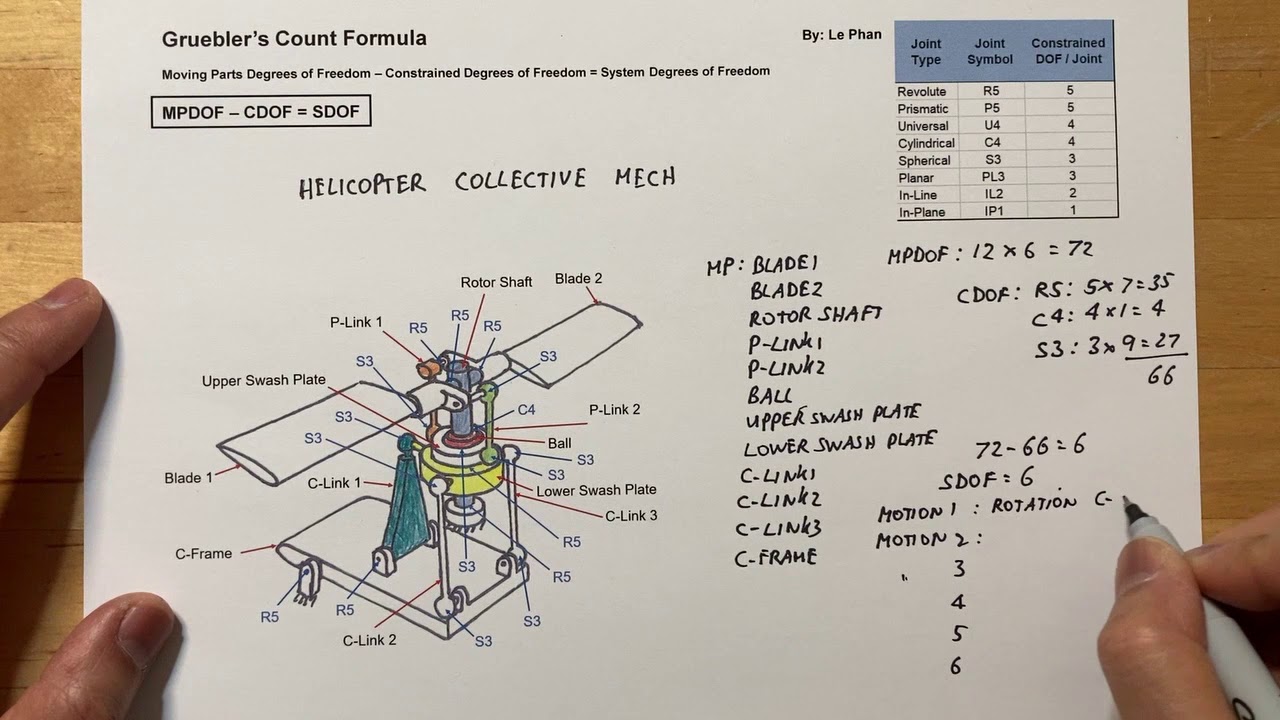 Gruebler's Count Formula
By: Le Phan
Moving Parts Degrees of Freedom – Constrained Degrees of Freedom = System Degrees of Freedom
MPDOF – CDOF = SDOF
Joint Type Joint Symbol Constrained DOF / Joint
Revolute R5 5
Prismatic P5 5
Universal U4 4
Cylindrical C4 4
Spherical S3 3
Planar PL3 3
In-Line IL2 2
In-Plane IP1 1
HELICOPTER COLLECTIVE MECH
Rotor Shaft
Blade 2
P-Link 1
R5
R5
R5
S3
S3
Upper Swash Plate
S3
C4
P-Link 2
S3
Ball
S3
S3
Blade 1
C-Link 1
Lower Swash Plate
C-Link 3
C-Frame
R5
S3
R5
R5
R5
C-Link 2
S3
S3
MP: BLADE1
BLADE2
ROTOR SHAFT
P-LINK1
P-LINK2
BALL
UPPER SWASH PLATE
LOWER SWASH PLATE
C-LINK1
C-LINK2
C-LINK3
C-FRAME
MPDOF: 12 × 6 = 72
CDOF: R5: 5×7=35
C4: 4×1= 4
S3: 3×9=27
66
72-66=6
SDOF = 6
MOTION 1 : ROTATION C-
MOTION 2:
" 3
4
5
6